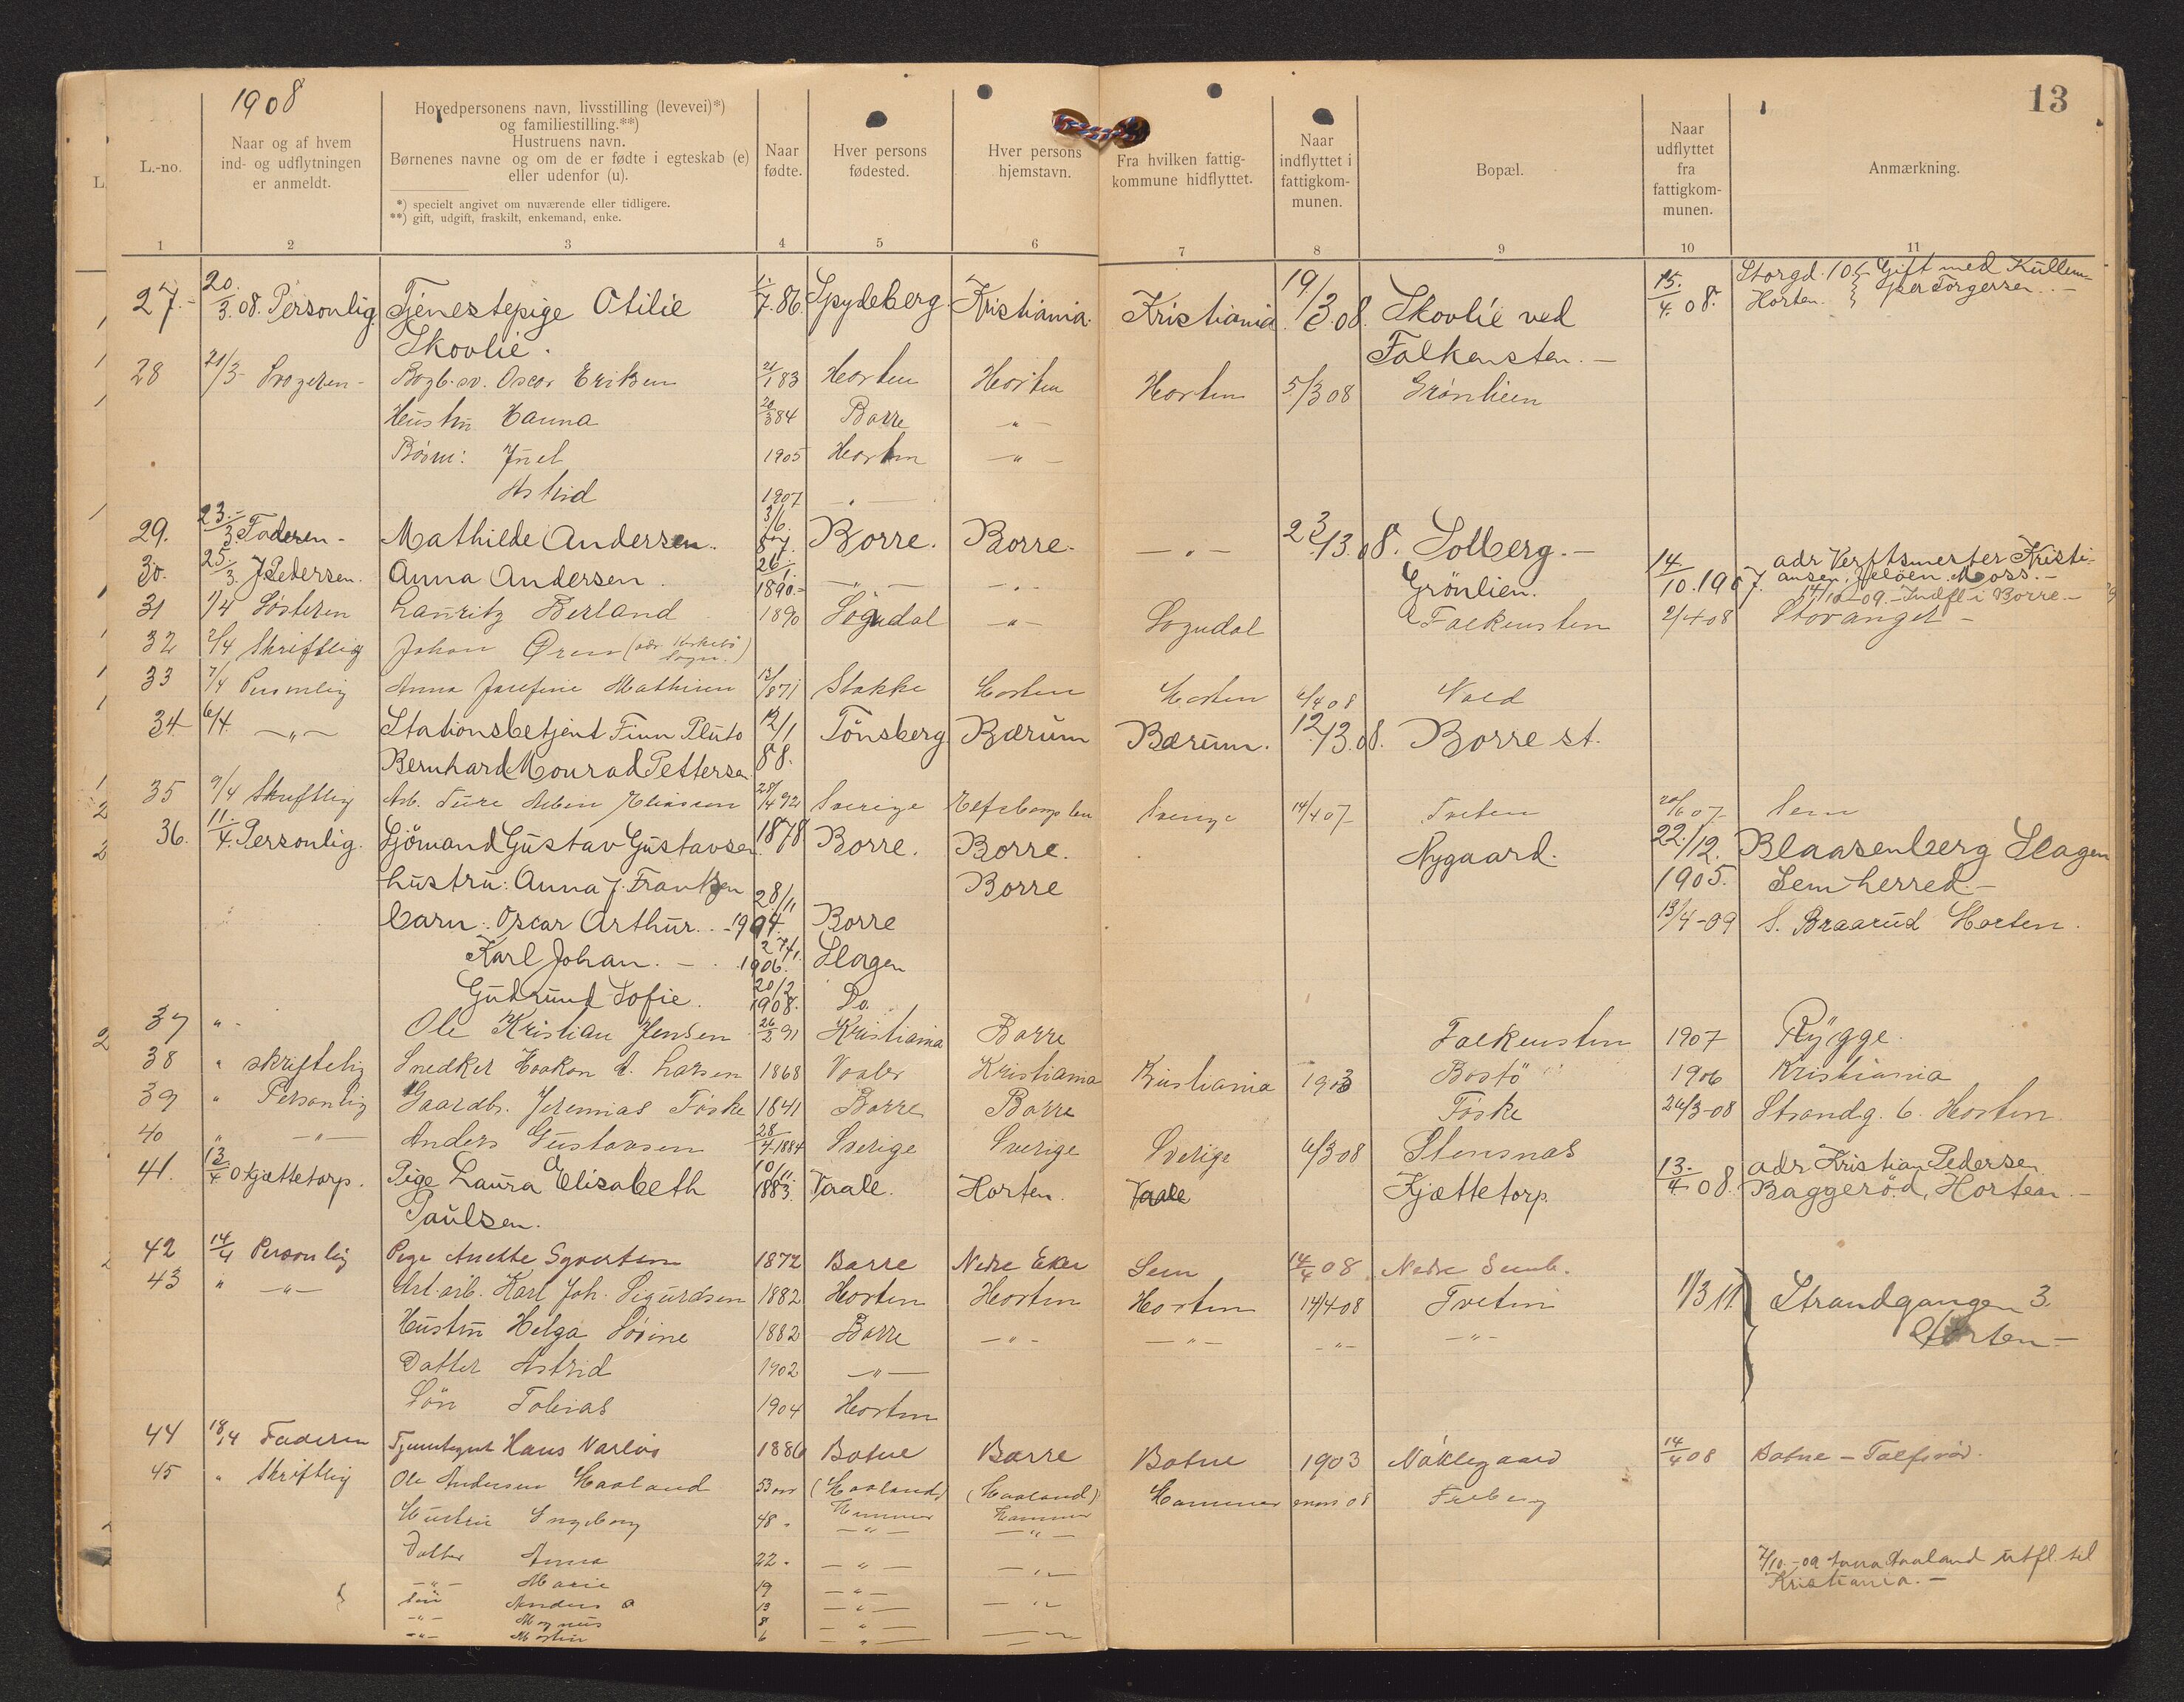 1908
13
L.-no.
Naar og af hvem
ind- og udflytningen
er anmeldt.
Hovedpersonens navn, livsstilling (levevei)*)
og familiestilling.**)
Hustruens navn.
Børnenes navne og om de er fødte i egteskab (e)
eller udenfor (u).
*) specielt angivet om nuværende eller tidligere.
**) gift, udgift, fraskilt, enkemand, enke.
Naar
fødte.
Hver persons
fødested.
Hver persons
hjemstavn.
Fra hvilken fattig-
kommune hidflyttet.
Naar
indflyttet i
fattigkom-
munen.
Bopæl.
Naar
udflyttet
fra
fattigkom-
munen.
Anmærkning.
1 2 3 4 5 6 7 8 9 10 11
27.- 20/3.08. Personlig. Tjenestepige Otilie 1/7.86. Spydeberg. Kristiania. Kristiania. 19/3.08. Skovlie ved 15./4.08. Storgd. 10 Gift med
Skovlie. Falkensten.- Horten. Torgersen.-
28 21/3 Svogeren- Oscar Eriksen 83 Horten Horten Horten 5/3 08 Grönlien
Hustru Hanna 20/3 84 Borre -"-
Börn: Juel 1905 Horten -"-
Astrid 1907 -"-
29. 23.-/3. Faderen- Mathilde Andersen. 3/6. 87. Borre. Borre. -"- 23/3.08. Solberg.-
30. 25/3. J. Pedersen. Anna Andersen. 26/1. 1890.- -"- -"- Grönlien. 14/10.1907. adr Verftsmester Kristi-
ansen, Jelöen. Moss.-
14/10-09.- Indfl i Borre.-
31 1/4 Söstern Lauritz Berland 1890 Sogndal -"- Sogndal Falkensten 2/4 08 Stavanger-
32 2/4 Skriftlig Johan Ören
33 7/4 Personlig Anna Josefine Mathisen 1871 Stokke Horten Horten 6/4 08 Vold
34 6/4. -"- Stationsbetjent Finn Pluto 12/1 Tönsberg Bærum Bærum. 12/3.08. Borre st.
Bernhard Monrad Pettersen. 88.
35 9/4 Skriftlig Arb. Ture 28/4 92 Sverige Sverige 14/4 07 Tveten 07 Sem
36. 11./4. Personlig. Sjömand Gustav Gustavsen. 1878 Borre. Borre. Nygaard. 22./12. Blaasenberg Slagen
hustru: Anna J. Frantzen Borre 1905. Sem herred.-
barn: Oscar Arthur. 28/11 1904. Borre 13/4-09 S. Braarud Horten.
Karl Johan. - 27/1. 1906. Slagen
Gudrund Sofie. 20/2 1908. Do.
37 "- Ole Kristian Jensen 26/2 91 Kristiania Borre Falkensten 1907 Rygge.
38 " skriftelig Snedker Haakon A. Larsen 1868 Vaaler Kristiania Kristiania 1903 Bostö 1906 Kristiania
39 " Personlig Gaardbr. Jeremias Töske 1841 Borre Borre Töske 26/3-08 Strandg. 6. Horten.
40 " -"- Anders Gustavsen 28/4 1884 Sverige Sverige Sverige 6/3 08 Stensnas
41. 13/4 O Kjættetorp. Pige Laura Elisabeth 10/11. 1883. Vaale. Horten. Vaale Kjættetorp. 13./4 08. adr Kristian Pedersen.
Paulsen. Baggeröd, Horten.-
42 14/4 Personlig Pige Anette Syvertsen 1872 Borre Nedre Eker Sem 14/4 08 Nedre Semb.
43 " -"- Karl Joh. Sigurdsen 1882 Horten Horten Horten 14/4 08 Tveten 1/3 11 Strandgangen 3.
Hustru Helga Lovine 1882 Borre -"- -"- -"- -"- Horten-
Datter Astrid 1902 -"-
Sön Tobias 1904 Horten
44 18/4 Faderen Hans Varlös 1886 Botne Borre Botne 1903 Nöklegaard 14/4 08 Botne -
45 " Skriftlig Ole Andersen Haaland 53 aar (Haaland) (Haaland) Hammer mars 08 Freberg
Hustru Ingeborg 48 " Hammer Hammer
Datter Anna 22 " -"- -"-
-"- Marie 19 -"-
Sön Anders O 13 -"- -"-
-"- Magnus 8 -"-
-"- Martin 6 -"- -"-
7/10.-09 Anna Haaland utfl. til
Kristiania.-